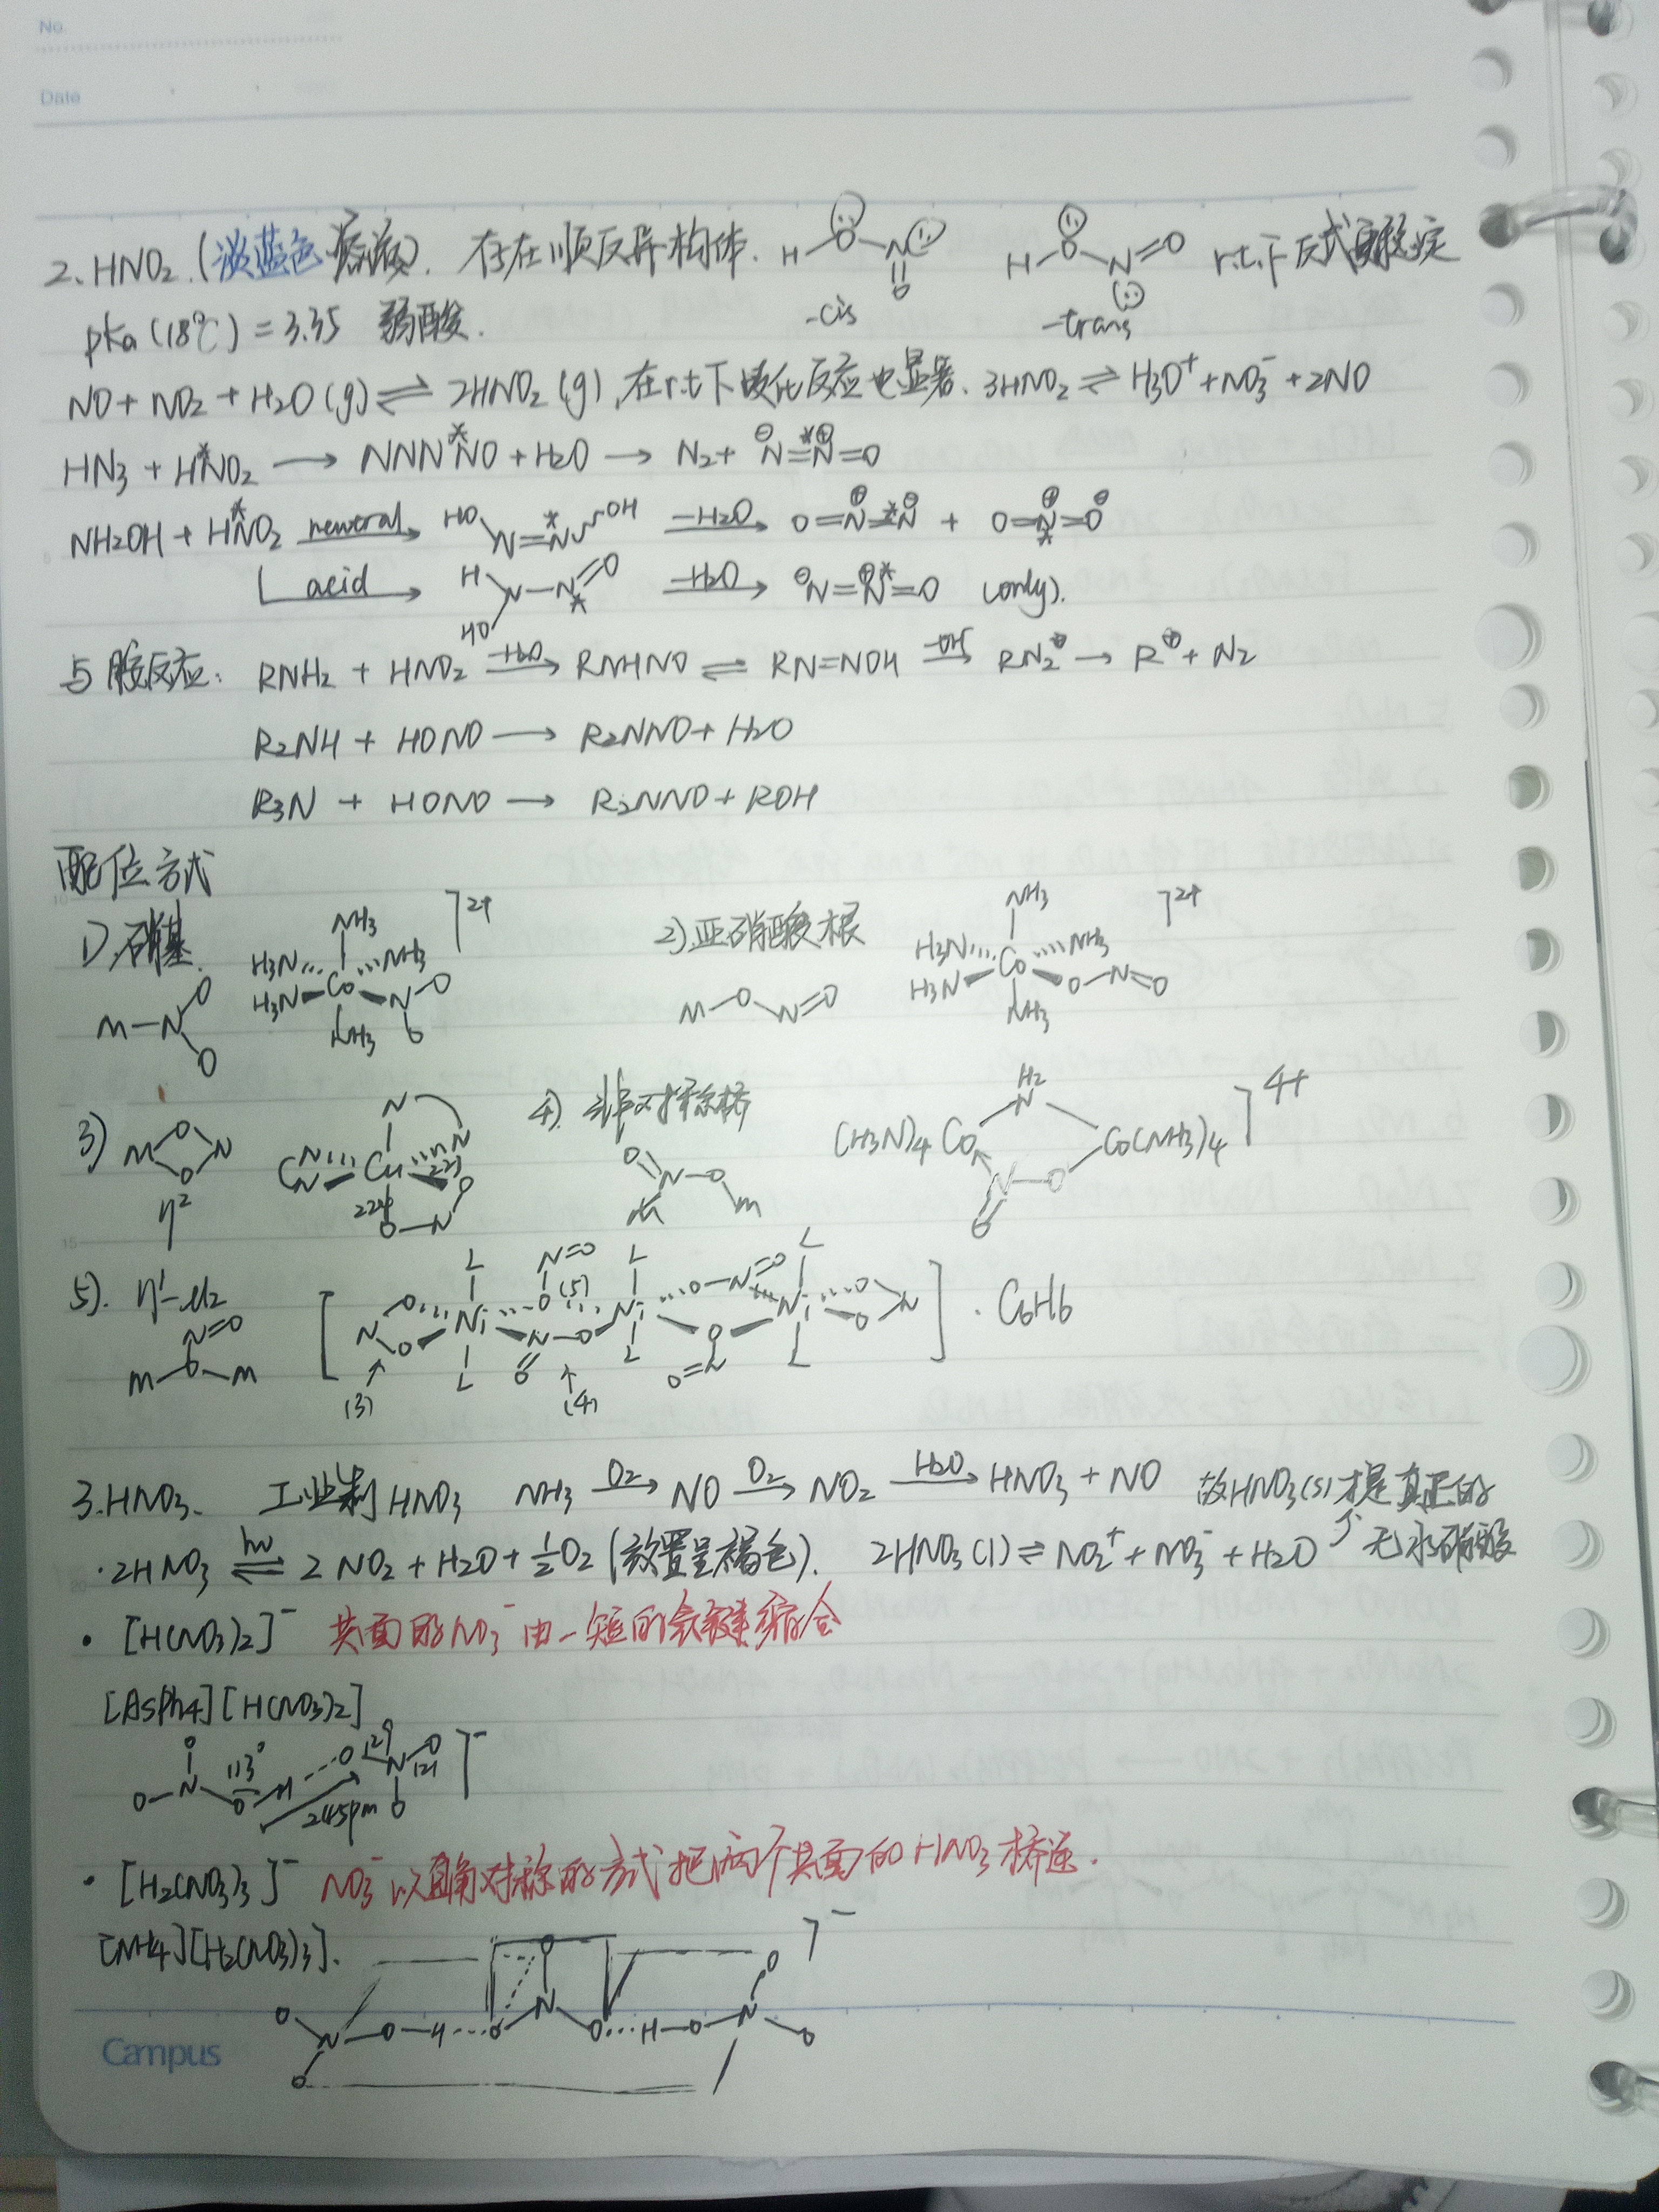 No.
Date
2. HNO2 (淡蓝色溶液). 存在顺反异构体. H O N O -cis H O N=O -trans r.t.下反式更稳定
pKa (18℃) = 3.35 弱酸.
NO + NO2 + H2O (g) ⇌ 2HNO2 (g), 在r.t下歧化反应也显著. 3HNO2 ⇌ H3O⁺ + NO3⁻ + 2NO
HN3 + HN*O2 → NNN N*O + H2O → N2 + ⊖N=N*⊕=O
NH2OH + HN*O2 neutral→ HO N=N* OH -H2O→ O=N⊕=*N⊖ + O=N⊕*=O⊖
acid→ H HO N-N*=O -H2O→ ⊖N=N⊕*=O (only).
与胺反应: RNH2 + HNO2 -H2O→ RNHNO ⇌ RN=NOH -OH⁻→ RN2⊕ → R⊕ + N2
R2NH + HONO → R2NNO + H2O
R3N + HONO → R2NNO + ROH
配位方式
1) 硝基 M-N O O NH3 H3N H3N Co NH3 N O O NH3 ]2+
2) 亚硝酸根 M-O-N=O NH3 H3N H3N Co NH3 O-N=O NH3 ]2+
3) M O O N η² N N N Cu N O O-N
4) 非对称桥 O=N-O M M (H3N)4 Co H2 N Co(NH3)4 N-O O ]4+
5). η¹-μ2 N=O M-O-M [ N O O Ni L L O N=O N-O O Ni L L O-N=O O O=N Ni L L O O N ] · C6H6
(3) (4) (5)
3. HNO3. 工业制HNO3 NH3 O2→ NO O2→ NO2 H2O→ HNO3 + NO 故HNO3(s)才是真正的
· 2HNO3 hν⇌ 2NO2 + H2O + ½O2 (放置呈褐色). 2HNO3 (l) ⇌ NO2⁺ + NO3⁻ + H2O 无水硝酸
· [H(NO3)2]⁻ 共面的NO3⁻由一短的氢键缔合
[AsPh4][H(NO3)2]
O O-N 113° O-H---O 129 N 121 O O 245pm ]⁻
· [H2(NO3)3]⁻ NO3⁻以直角对称的方式把两个共面的HNO3桥连.
[NH4][H2(NO3)3].
O N O O-H···O N O O···H-O N O O ]⁻
Campus